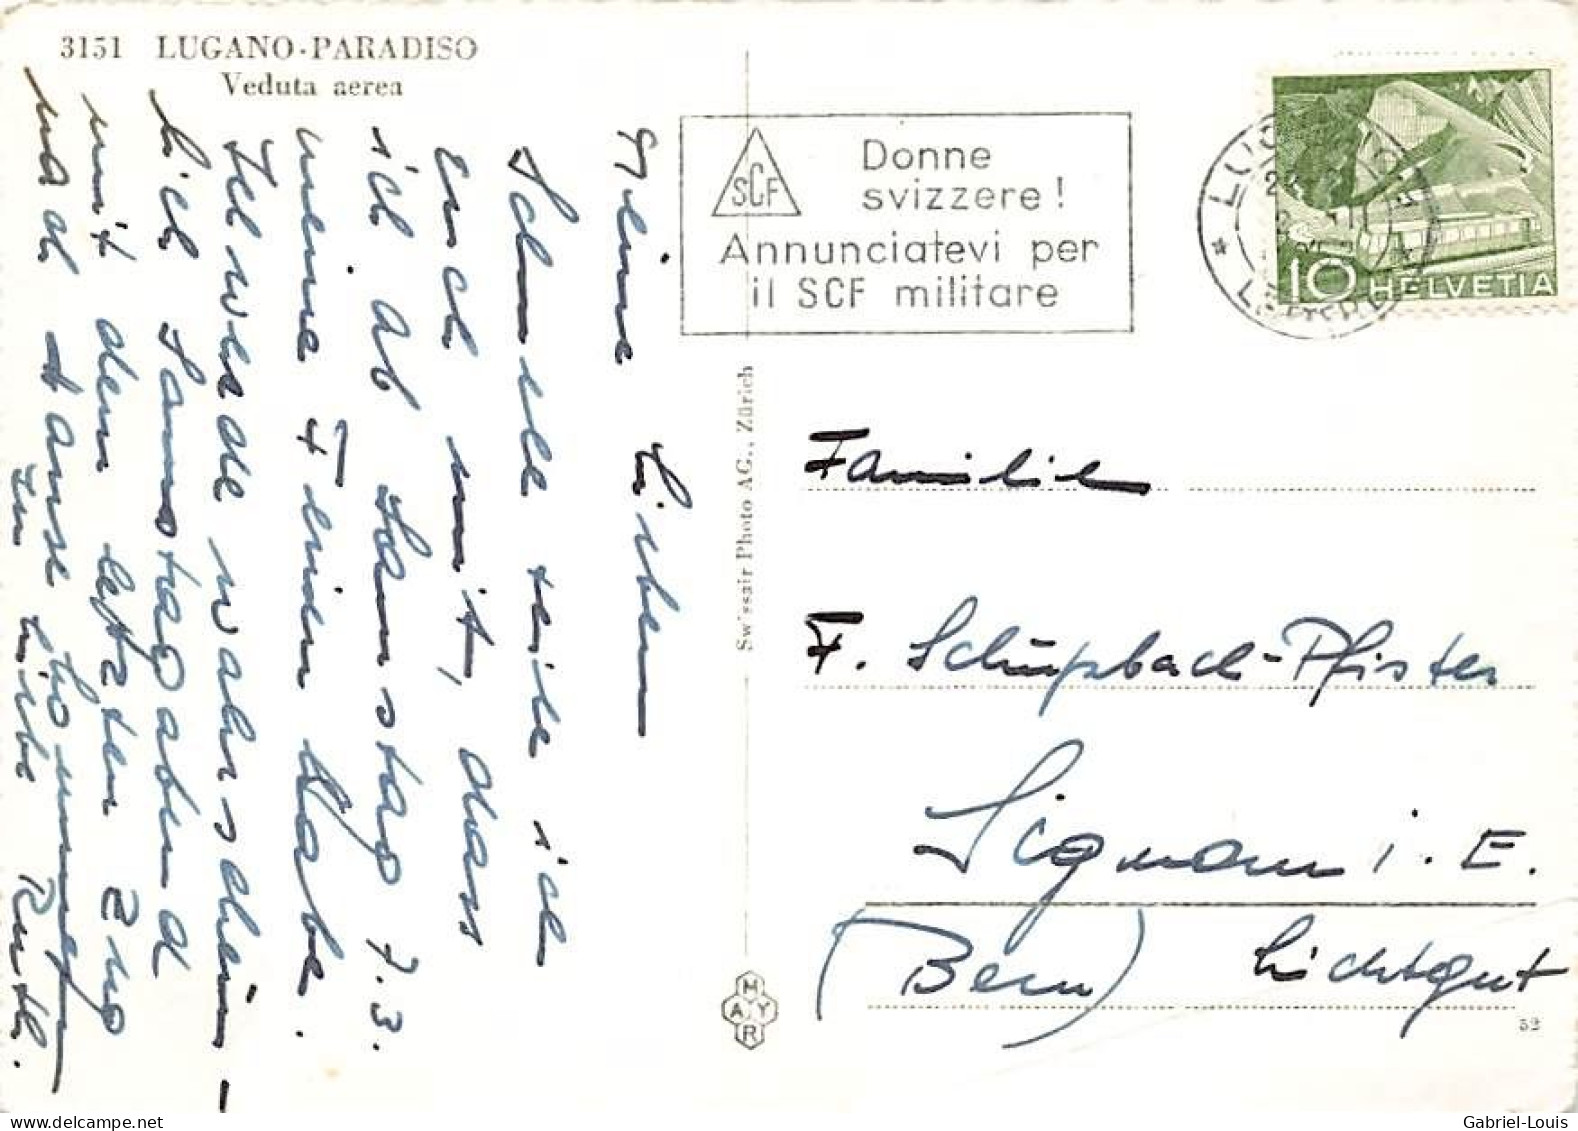 3151 LUGANO-PARADISO
Veduta aerea
Meine Lieben
Schnell teile ich
Euch mit, dass
ich ab Samstag 7.3.
meine Ferien habe.
Ich werde wahrschein-
lich Samstagabend
mit dem letzten Zug
nach Hause kommen
Eure liebe Ruth.
SCF
Donne
svizzere!
Annunciatevi per
il SCF militare
10 HELVETIA
Swissair Photo AG., Zürich
Familie
F. Schüpbach-Pfister
Signau i. E.
(Bern) Lichtgut
MAYR
52
Gabriel-Louis